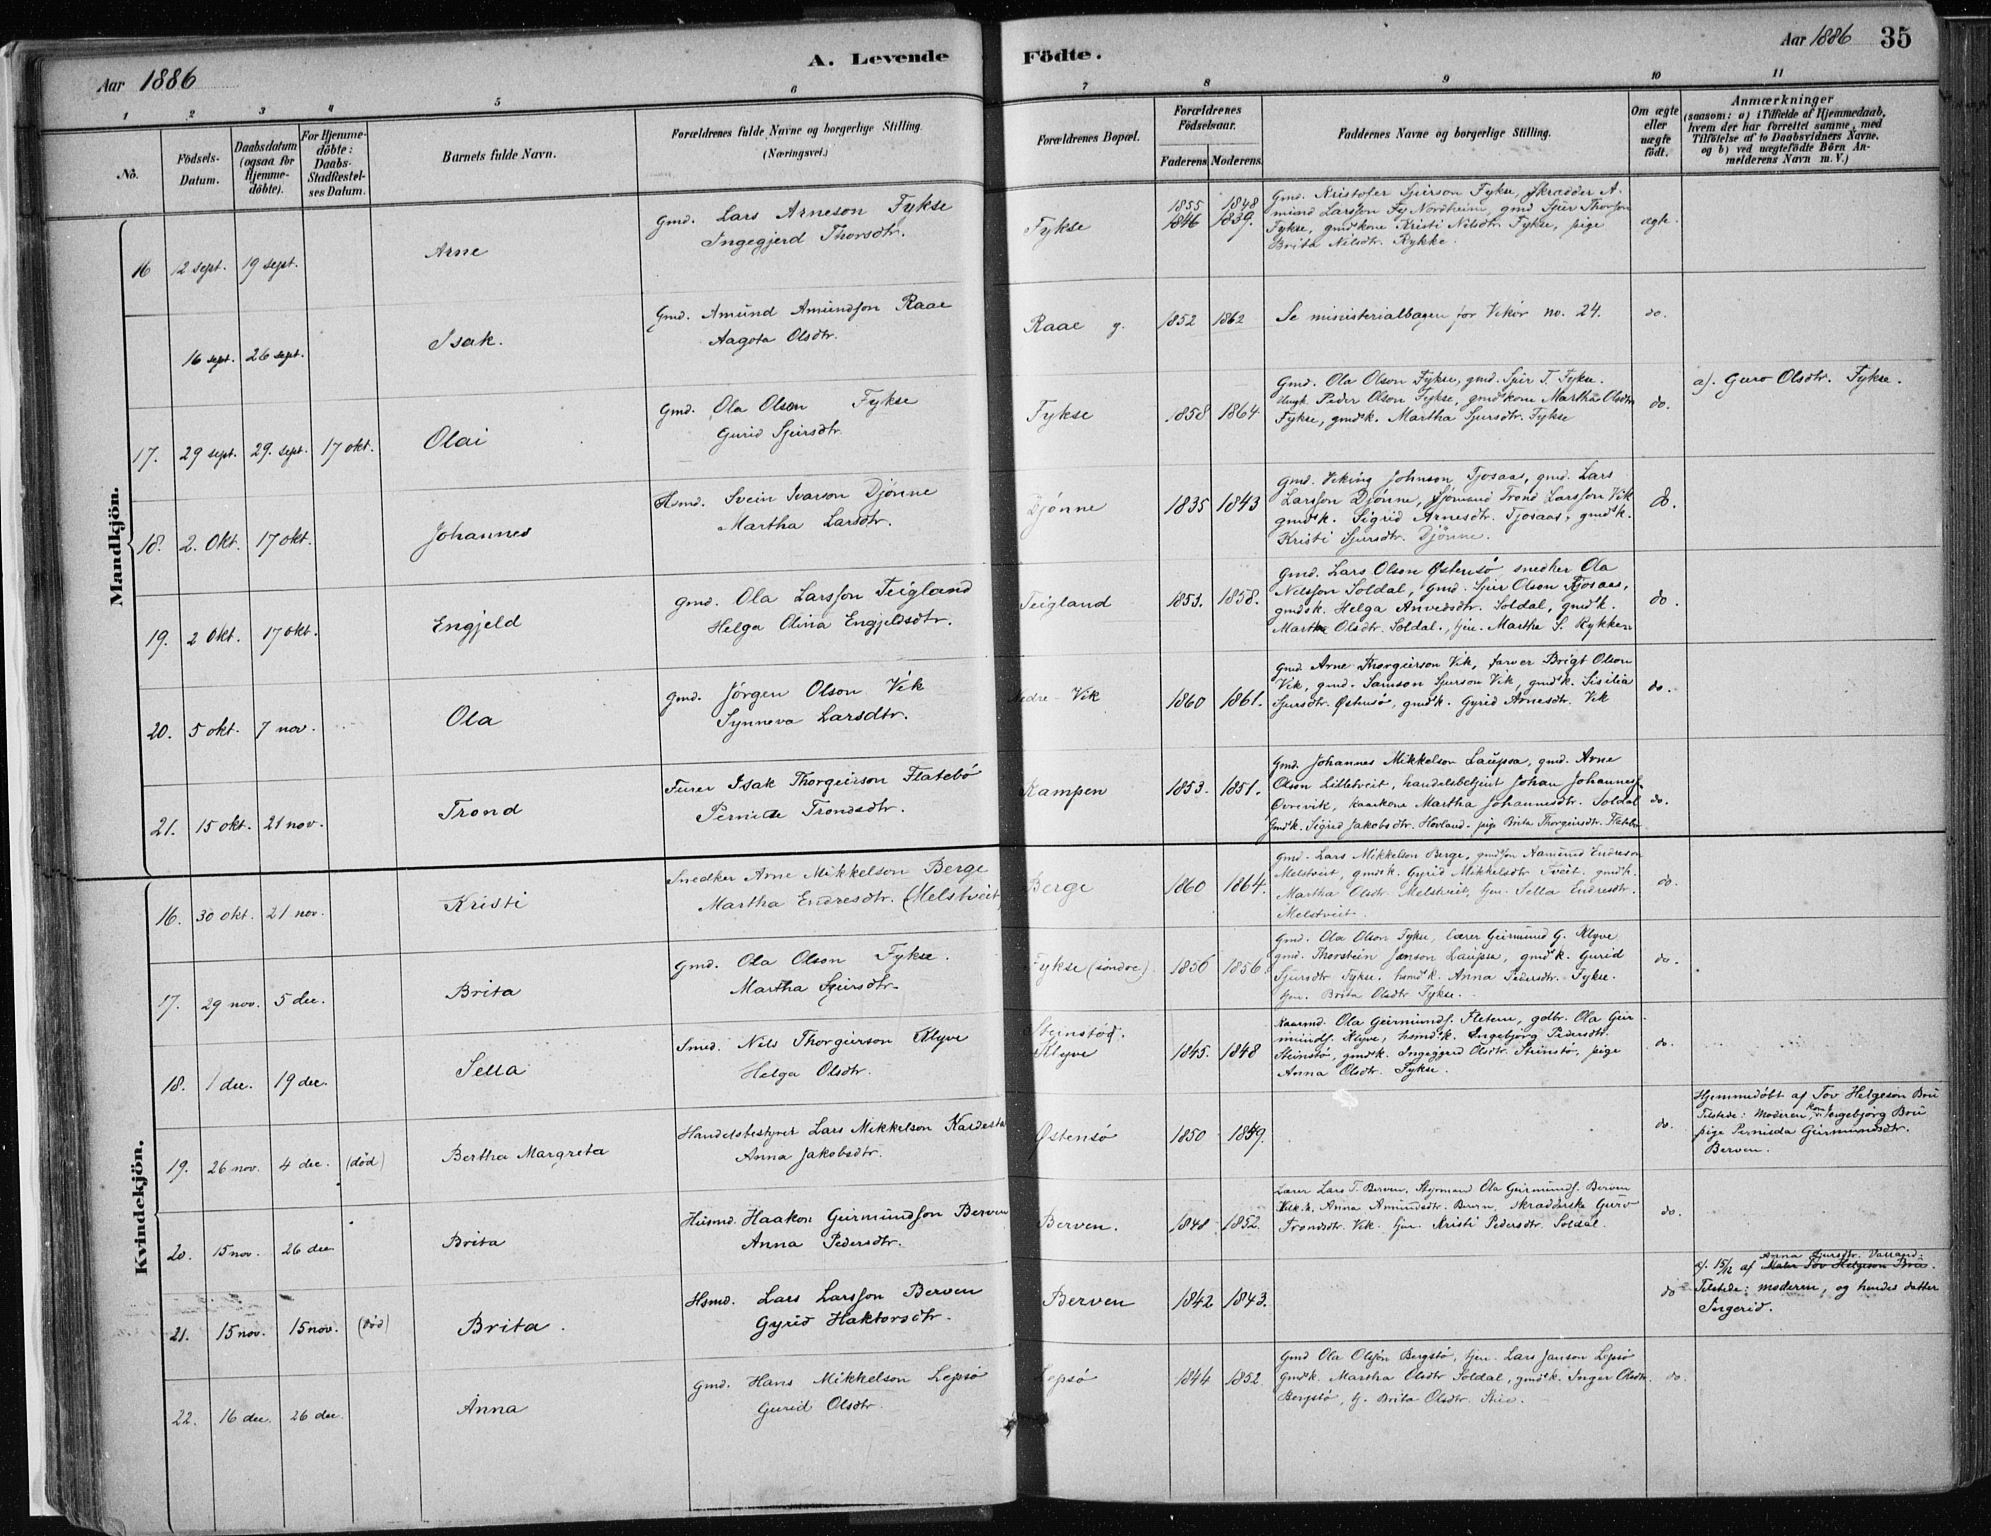 Aar 1886
A. Levende
Födte.
Aar 1886 35
1 2 3 4 5 6 7 8 9 10 11
No.
Födsels-Datum.
Daabsdatum (ogsaa for Hjemme-döbte).
For Hjemme-döbte: Daabs-Stadfæstel-ses Datum.
Barnets fulde Navn.
Forældrenes fulde Navne og borgerlige Stilling.
(Næringsvei.)
Forældrenes Bopæl.
Forældrenes Födselsaar.
Faderens Moderens
Faddernes Navne og borgerlige Stilling.
Om ægte eller uægte födt.
Anmærkninger
(saasom: a) i Tilfælde af Hjemmedaab, hvem der har forrettet samme, med Tilföielse af to Daabsvidners Navne, og b) ved uægtefödte Börn Anmelderens Navn m. V.)
Mandkjön.
16 12 sept. 19 sept. Arne
Gmd. Lars Arneson Fykse
Ingegjerd Thorsdtr.
Fykse
1855 1848
1846 1839.
Gmd. Kristofer Sjurson Fykse, Skrædder A-
mund Larsson Nordheim, gmd Sjur Thorson
Fykse, gmdkone Kristi Nilsdtr. Fykse, pige
Brita Nilsdtr. Rykke.
ægte.
16 sept. 26 sept. Isak.
Gmd. Amund Amundson Raae
Aagota Olsdtr.
Raae g. 1852 1862
Se ministerialbogen for Vikör no. 24. do.
17. 29 sept. 29. sept. 17 okt. Olai
Gmd. Ola Olson Fykse
Gurid Sjursdtr.
Fykse 1858 1864.
Gmd. Ola Olson Fykse, gmd. Sjur T. Fykse.
Ungk. Peder Olson Fykse, gmdkone Martha Olsdtr
Fykse, gmdk. Martha Sjursdtr. Fykse
do.
a). Guro Olsdtr. Fykse.
18. 2. Okt. 17 okt. Johannes
Hsmd. Svein Ivarson Djönne
Martha Larsdtr.
Djönne 1835 1843
Gmd. Viking Johnson Tjosaas, gmd. Lars
Larsson Djönne, Sjömand Trond Larsson Vik
gmdk. Sigrid Arnesdtr. Tjosaas, gmdk.
Kristi Sjursdtr. Djönne.
do.
19. 2 Okt. 17 okt. Engjeld
Gmd. Ola Larsson Teigland
Helga Olina Engjeldsdtr.
Teigland 1853. 1858.
Gmd. Lars Olson Östensö snedker Ola
Nilsson Soldal, Gmd. Sjur Olson Tjosaas,
gmdsk. Helga Anversdtr. Soldal, gmdk.
Martha Olsdtr. Soldal., tjen. Martha S. Rykken
do.
20. 5 okt. 7 nov. Ola
Gmd. Jörgen Olson Vik
Synneva Larsdtr.
Nedre-Vik 1860 1861.
Gmd Arne Thorgeirson Vik, farver Brigt Olson
Vik, gmd. Samson Sjurson Vik, gmdk. Sisilia
Sjursdtr. Östensö, gmdk. Gyrid Arnesdtr. Vik
do.
21. 15 okt. 21 nov. Trond
Furer Isak Thorgeirson Flatebö
Pernille Trondsdtr.
Kampen 1853. 1851.
Gmd. Johannes Mikkelson Laupsa, gmd. Arne
Olson Lilletveit, handelsbetjent Johan Johannes.
Övrevik, kaarkone Martha Johannesdtr. Soldal
Gmdk. Sigrid Jakobsdtr. Hovland - pige Brita Thorgeirsdtr. Flatebö
do.
Kvindekjön.
16. 30 okt. 21 nov. Kristi
Snedker Arne Mikkelson Berge
Martha Endresdtr. (Melstveit)
Berge 1860 1864.
Gmd. Lars Mikkelson Berge, gmdson Aamund Endreson
Melstveit, gmdsk. Gyrid Mikkelsdtr Tveit, gmdk.
Martha Olsdtr. Melstveit, tjen. Sella Endresdtr.
Melstveit.
do.
17. 29 nov. 5 dec. Brita
Gmd. Ola Olson Fykse.
Martha Sjursdtr.
Fykse (söndre) 1856 1856.
Gmd. Ola Olson Fykse, lærer Geirmund G. Klyve
gmd. Thorstein Janson Laupsa, gmdk. Gurid
Sjursdtr Fykse. hsmdk. Anna Pedersdtr. Fykse.
tjen. Brita Olsdtr Fykse.
do.
18. 1 dec. 19 dec. Sella
Smed. Nils Thorgeirson Klyve
Helga Olsdtr.
Steinstö.
Klyve
1845. 1848
Kaarmd. Ola Geirmunds. Fletene, gdbr. Ola Geir-
munds. Klyve, hsmdk. Ingebjörg Pedersdtr.
Steinstö, gmdsk. Ingeggerd Olsdtr. Steinstö, pige
Anna Olsdtr. Fykse.
do.
19. 26 nov. 4 dec. (död) Bertha Margreta
Handelsbestyrer Lars Mikkelson
Anna Jakobsdtr.
Östensö 1850 1849.
do.
Hjemmedöbt af Tov Helgeson Bru
Tilstede: Moderen, Kone Ingebjörg Bru
pige Pernilla Geirmundsdtr.
Berven.
20. 15 nov. 26 dec. Brita
Husmd. Haakon Geirmundson Berven
Anna Pedersdtr.
Berven. 1848 1852.
Lærer Lars T. Berven, Styrmand Ola Geirmunds. Berven
Anna Amundsdtr. Berven, Skrædderske Guro
Trondsdtr. Vik. tjen. Kristi Pedersdtr. Soldal.
do.
21. 15 nov. 15 nov. (död) Brita.
Hsmd. Lars Larsson Berven
Gyrid Haktorsdtr.
Berven 1842 1843.
do
a). 15/12 af Anna Sjursdtr.
Maler Tov Helgeson Bru.
Tilstede: moderen, og hendes datter
Ingerid.
22. 16 dec. 26 dec. Anna
Gmd. Hans Mikkelson Lepsö
Gurid Olsdtr
Lepsö 1844 1852.
Gmd Ola Olson Bergstö, tjen. Lars Janson Lepsö
Gmdk. Martha Olsdtr Soldal, gmdk. Inger Olsdtr.
Bergstö, tj. Brita Olsdtr.
do.